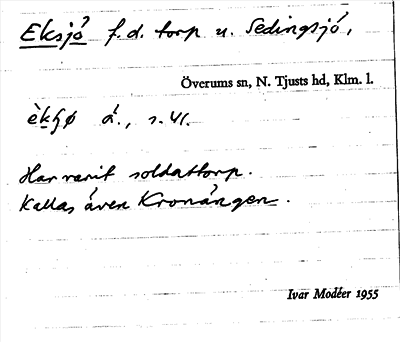 Eksjö f.d. torp u. Sedingsjö,
Överums sn, N. Tjusts hd, Klm. l.
s. 41.
Har varit soldattorp.
Kallas även Kronängen.
Ivar Modéer 1955